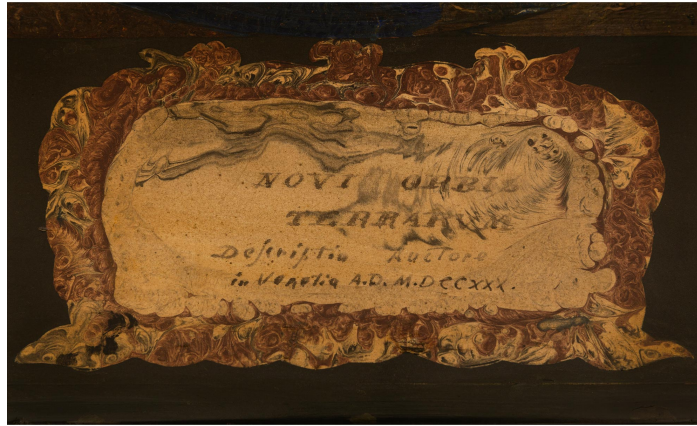 NOVI ORBIS
TERRARUM
Descriptio Auctore
in Venetia A.D. M.DCCXXX.